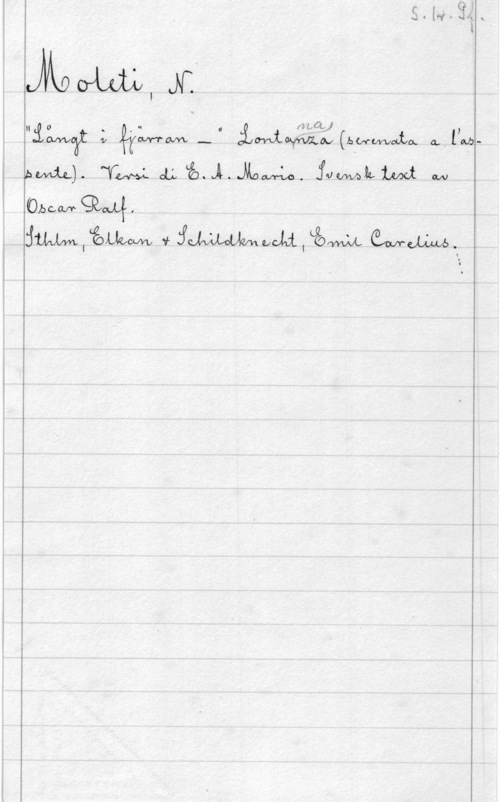 S. tr. Pf.
Moleti, N.
"Långt i fjärran _" Lontananza (serenata a l'as-
sente). Versi di E. A. Mario. Svensk text av
Oscar Ralf.
Sthlm, Elkan & Schildknecht, Emil Carelius.